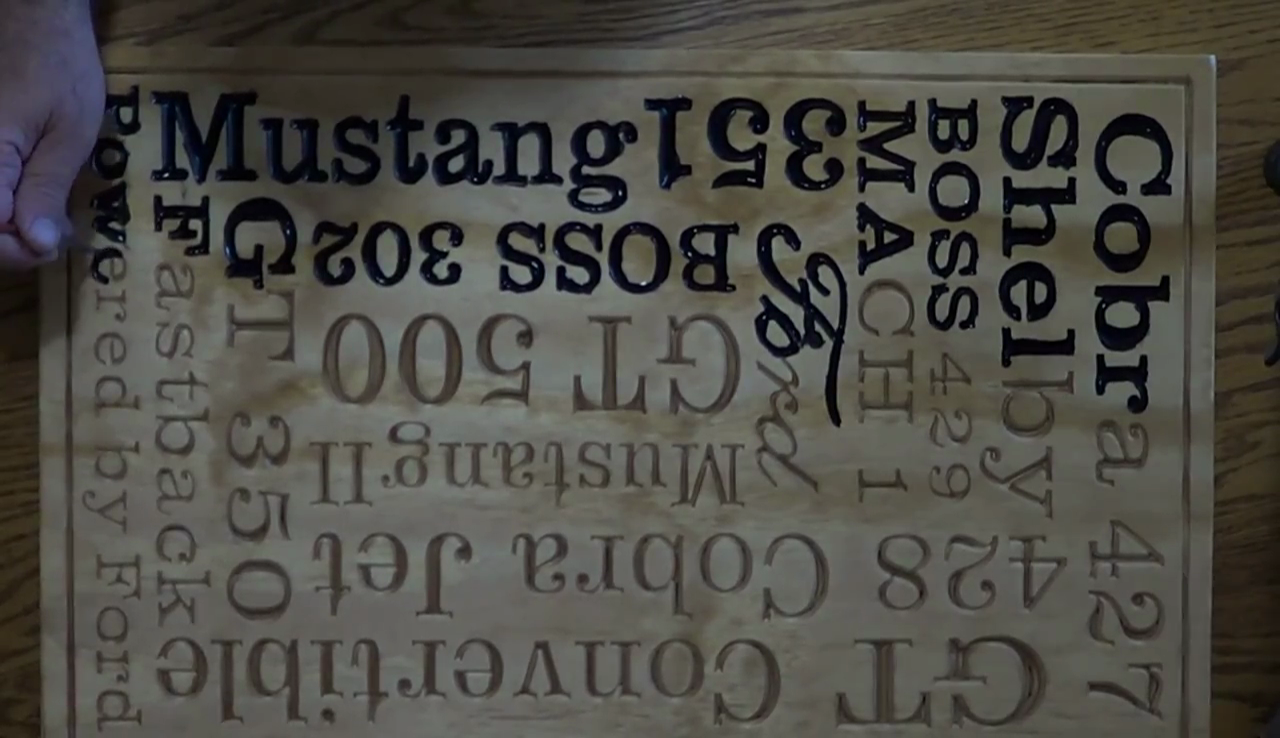 Powered by Ford
Mustang
351
Fastback
GT 350
BOSS 302
Ford
MACH 1
BOSS 429
Shelby
Cobra 427
GT 500
Mustang II
428 Cobra Jet
GT Convertible